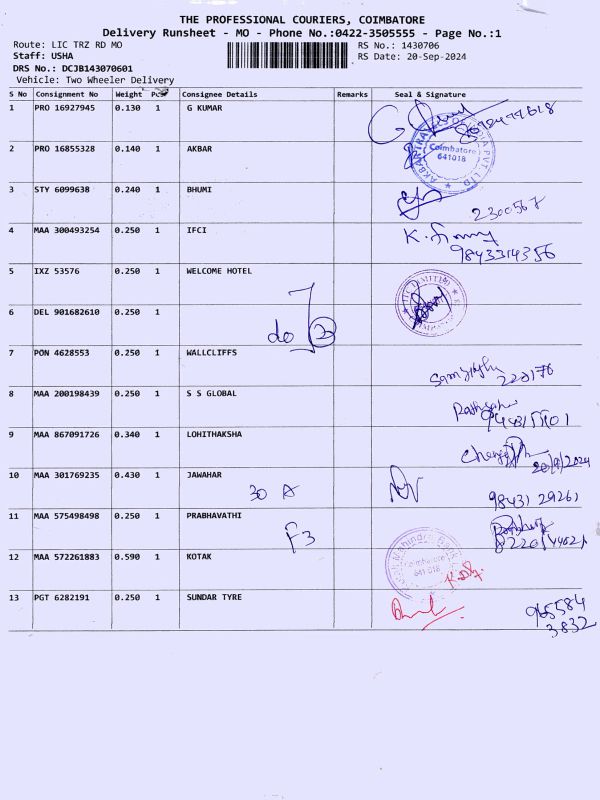 THE PROFESSIONAL COURIERS, COIMBATORE
Delivery Runsheet - MO - Phone No.:0422-3505555 - Page No.:1
Route: LIC TRZ RD MO
RS No.: 1430706
Staff: USHA
RS Date: 20-Sep-2024
DRS No.: DCJB143070601
Vehicle: Two Wheeler Delivery
S No Consignment No Weight Pcs Consignee Details Remarks Seal & Signature
1 PRO 16927945 0.130 1 G KUMAR
2 PRO 16855328 0.140 1 AKBAR
Coimbatore
641018
3 STY 6099638 0.240 1 BHUMI
2300567
4 MAA 300493254 0.250 1 IFCI
9843314356
5 IXZ 53576 0.250 1 WELCOME HOTEL
ITC LIMITED
6 DEL 901682610 0.250 1
do
7 PON 4628553 0.250 1 WALLCLIFFS
220176
8 MAA 200198439 0.250 1 S S GLOBAL
9 MAA 867091726 0.340 1 LOHITHAKSHA
20/9/2024
10 MAA 301769235 0.430 1 JAWAHAR
30 A
98431 29261
11 MAA 575498498 0.250 1 PRABHAVATHI
F3
12 MAA 572261883 0.590 1 KOTAK
Coimbatore
641 018
13 PGT 6282191 0.250 1 SUNDAR TYRE
965584
3832